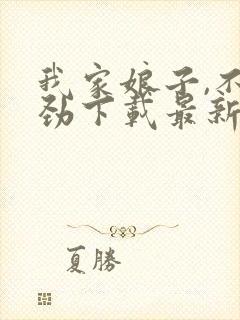 我家娘子,不
劲下载最新
夏勝